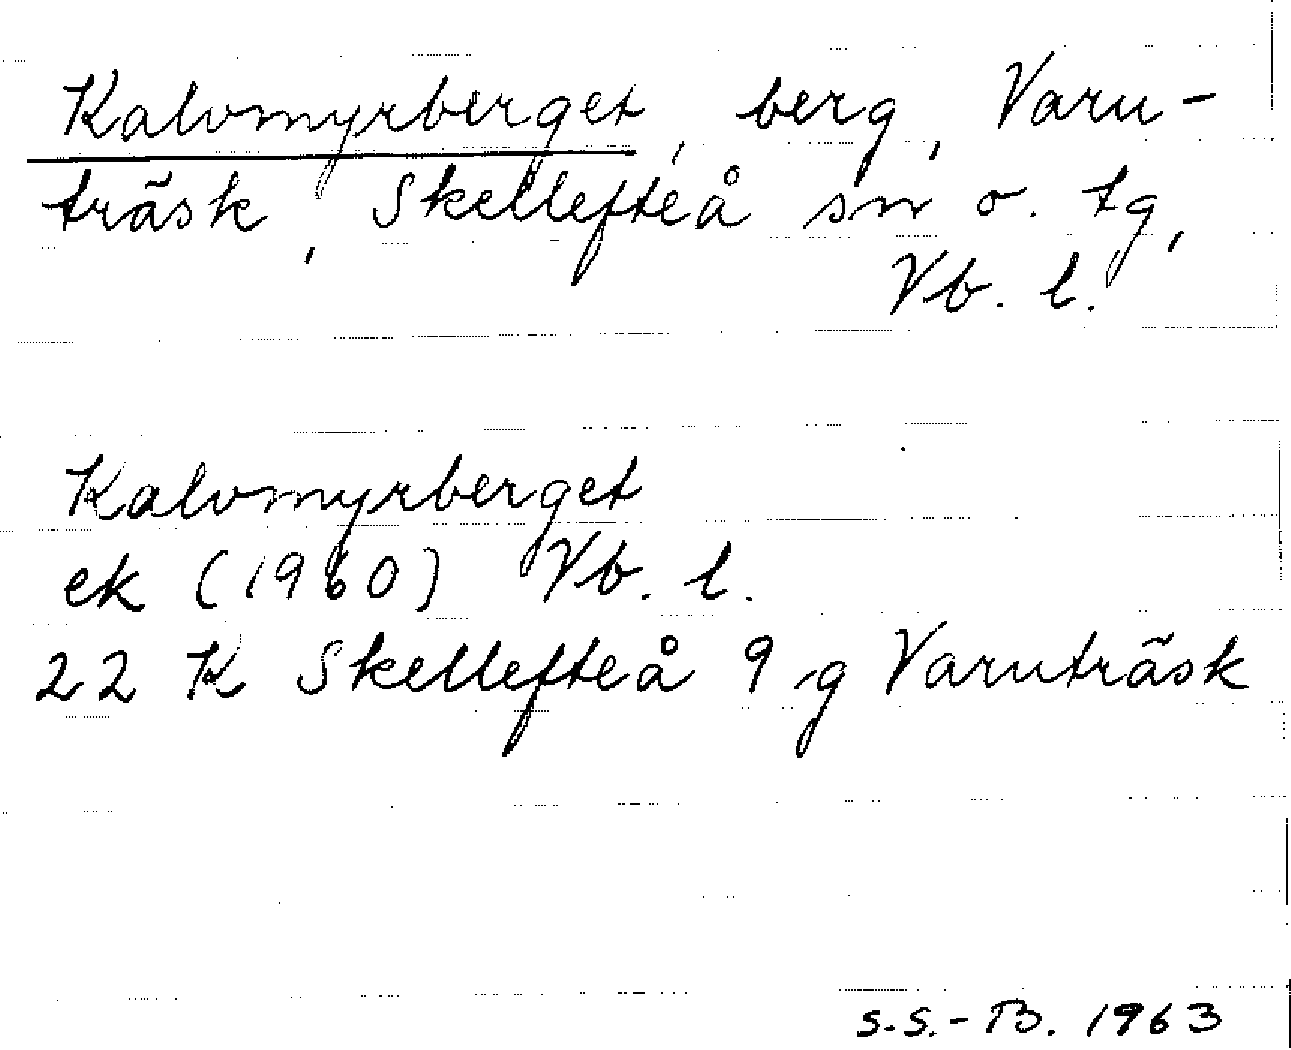 Kalvmyrberget, berg, Varu-
träsk, Skellefteå sn o. tg,
Vb. l.
Kalvmyrberget
ek (1960) Vb. l.
22 K Skellefteå 9 g Varuträsk
S.S.-B. 1963